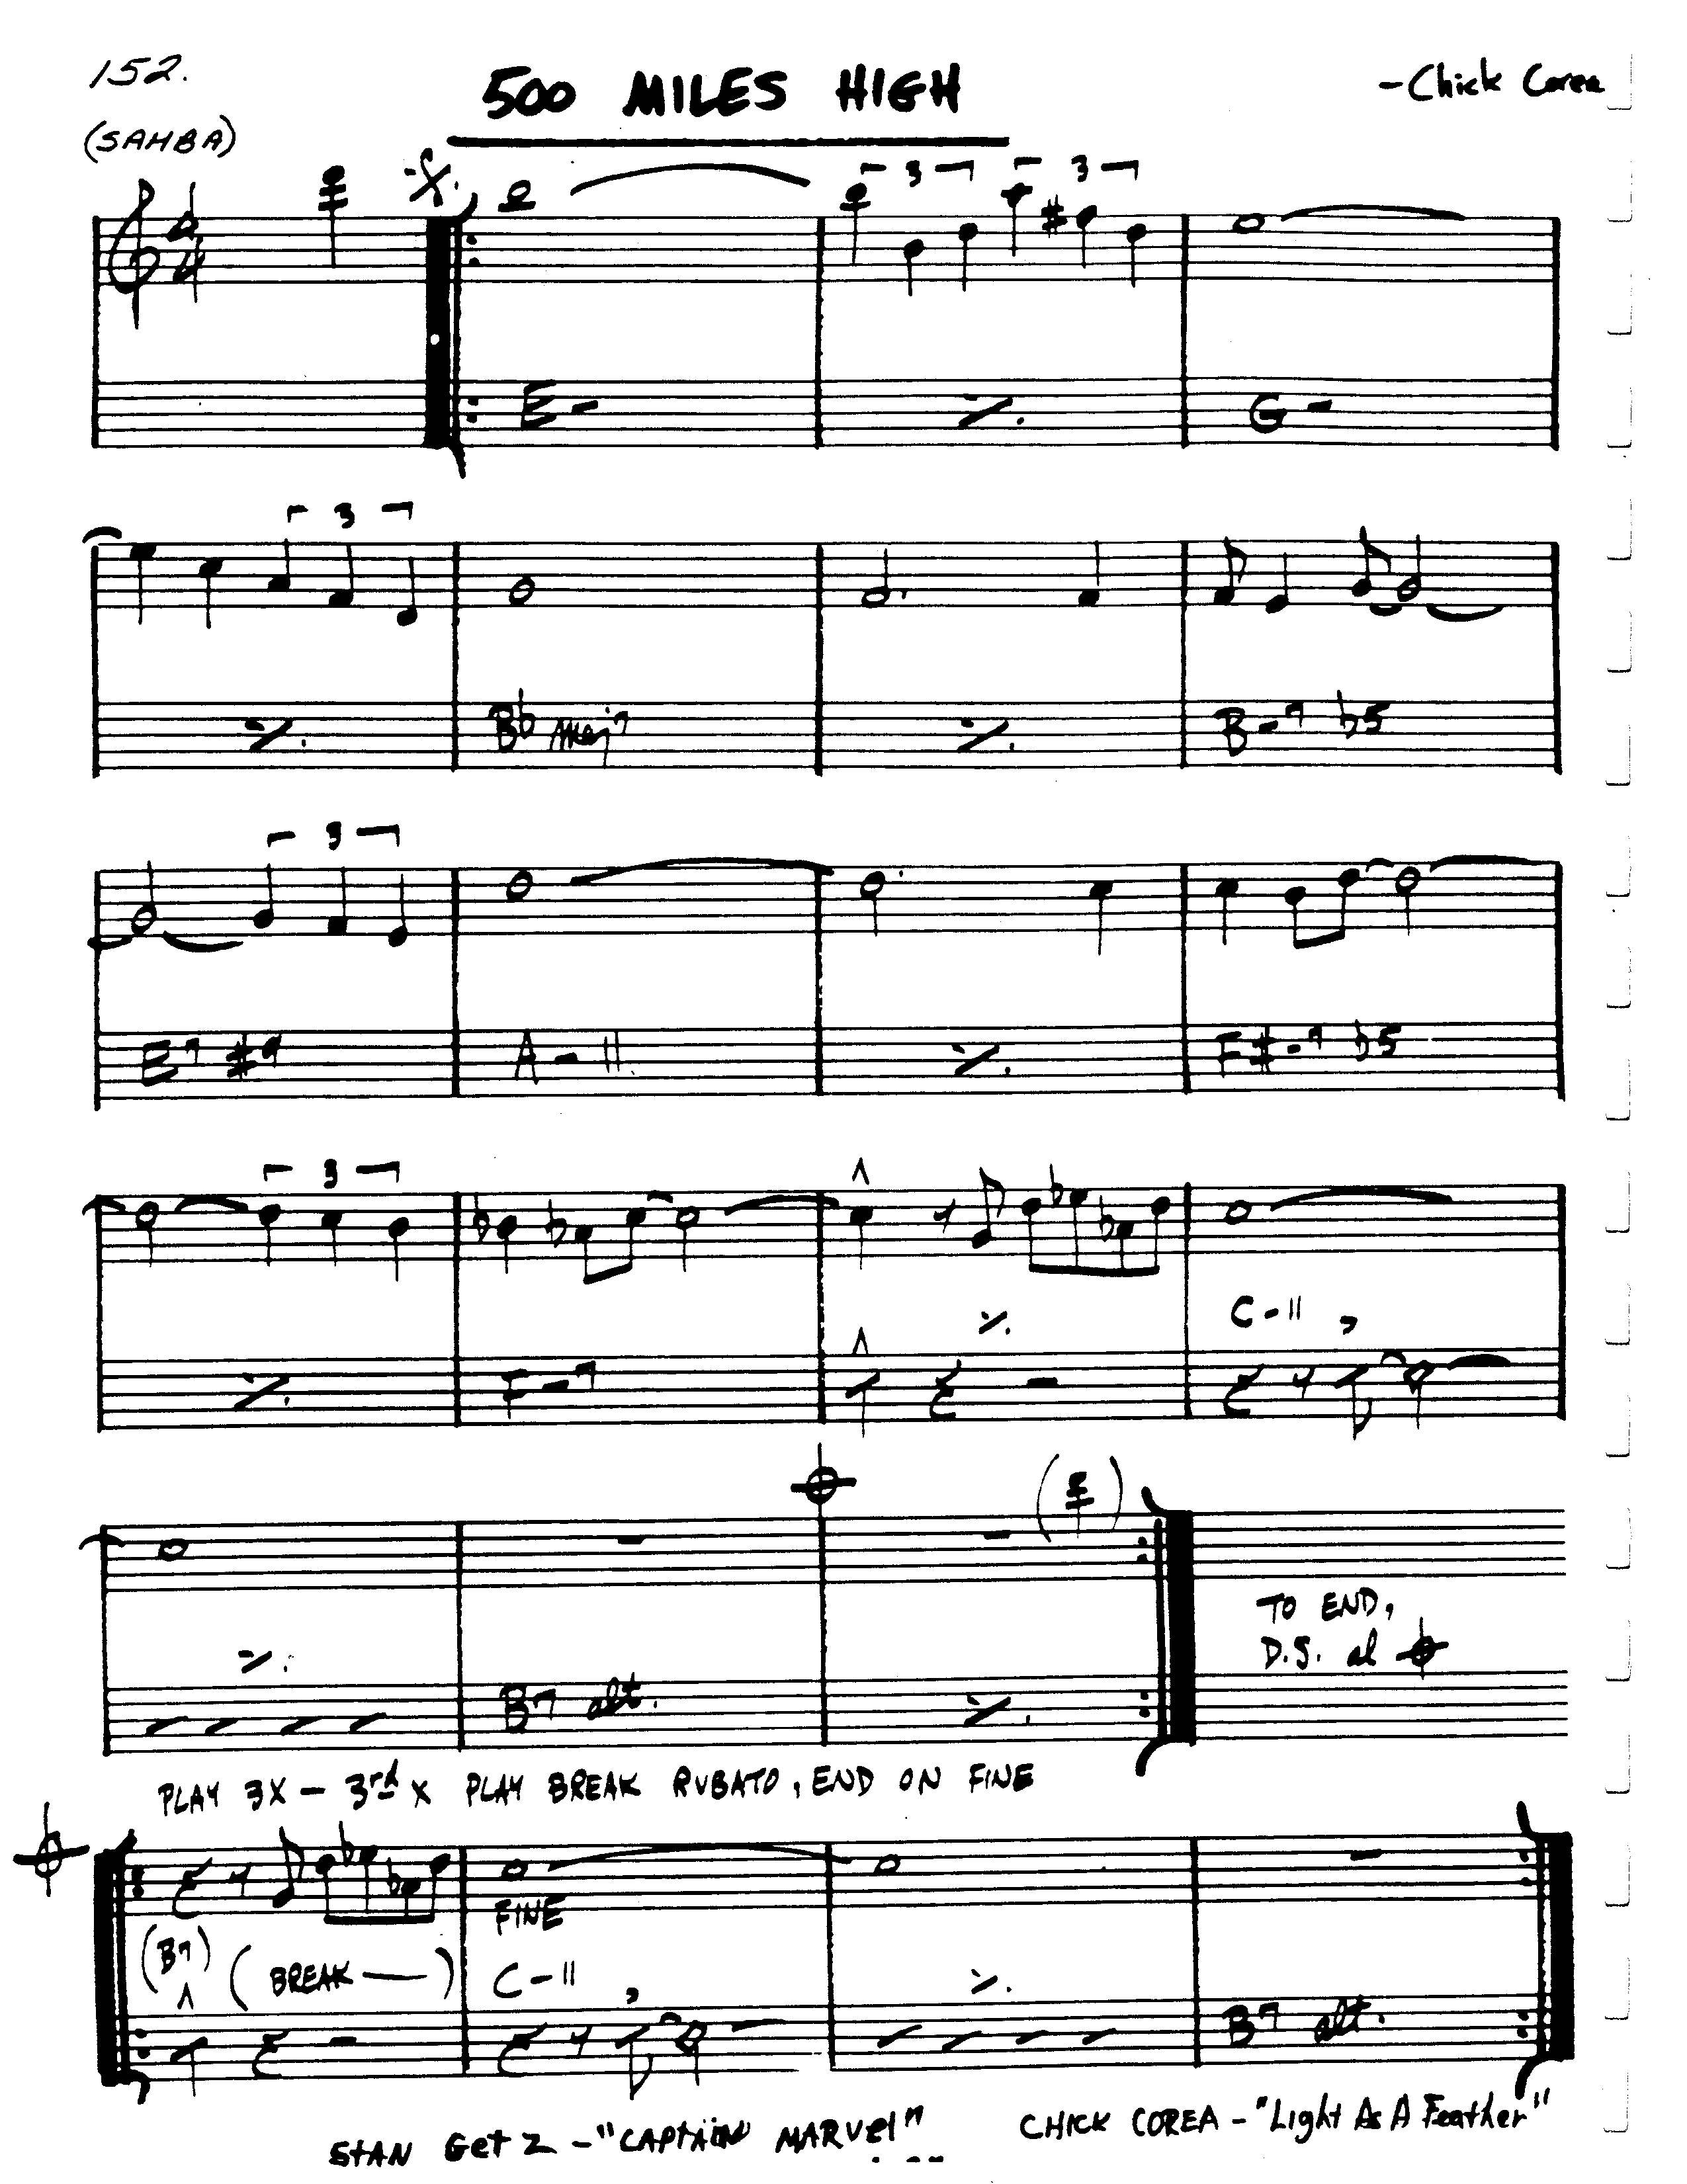 152.
500 MILES HIGH
-Chick Corea
(SAMBA)
3 3
E- G-
3
Bb Maj7 B-7 b5
3
E7 #9 A-11 F#-7 b5
3
C-11
F-7
TO END,
D.S. al
B7 alt.
PLAY 3X - 3rd X PLAY BREAK RUBATO, END ON FINE
FINE
(B7) (BREAK —) C-11
B7 alt.
STAN GETZ - "CAPTAIN MARVEL" CHICK COREA - "Light As A Feather"